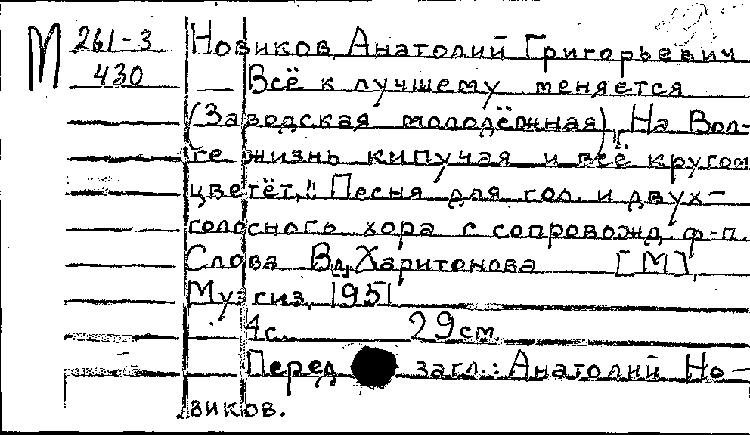 М 261-3 Новиков, Анатолий Григорьевич
430 Всё к лучшему меняется
(Заводская молодёжная) „На Вол-
ге жизнь кипучая и всё кругом
цветёт," Песня для гол. и двух-
голосного хора с сопровожд. ф-п.
Слова Вл. Харитонова [М],
Музгиз, 1951
4с. 29см
Перед загл.: Анатолий Но-
виков.